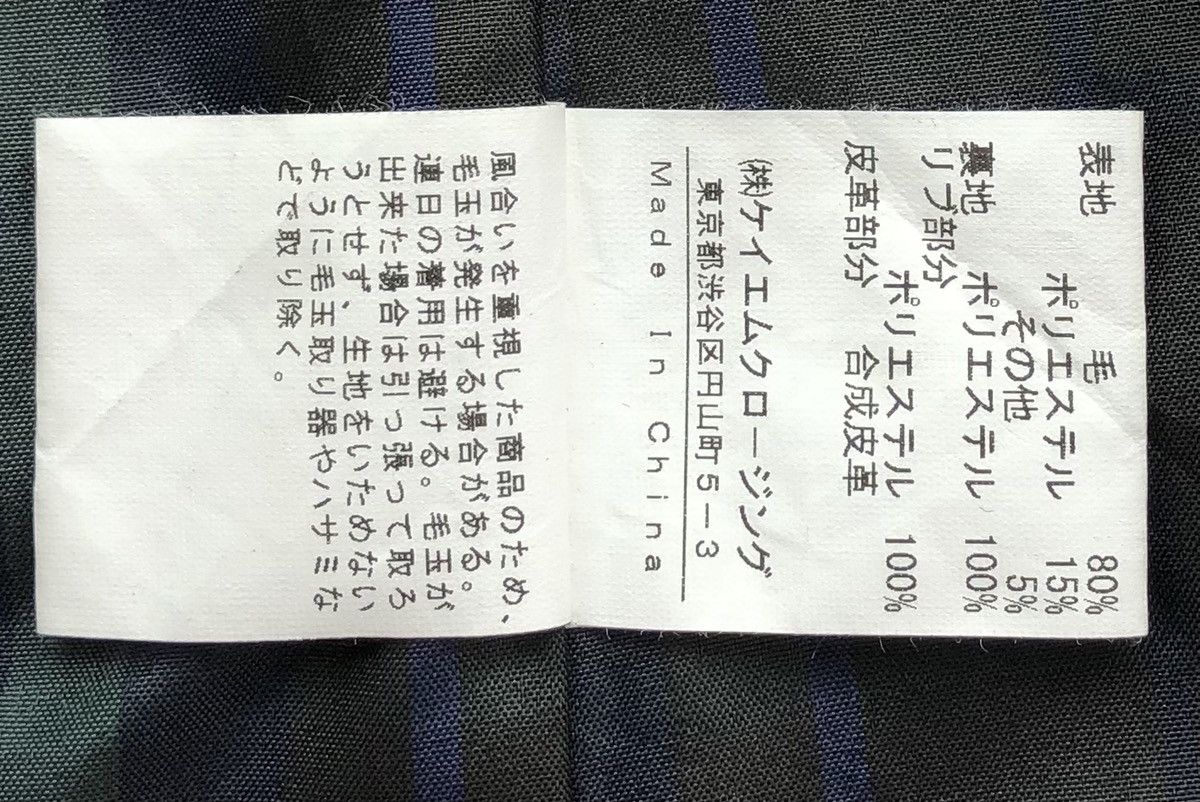 表地 毛 80%
ポリエステル 15%
その他 5%
裏地 ポリエステル 100%
リブ部分
ポリエステル 100%
皮革部分 合成皮革
㈱ケイエムクロージング
東京都渋谷区円山町5-3
Made In China
風合いを重視した商品のため、
毛玉が発生する場合がある。
連日の着用は避ける。毛玉が
出来た場合は引っ張って取ろ
うとせず、生地をいためない
ように毛玉取り器やハサミな
どで取り除く。